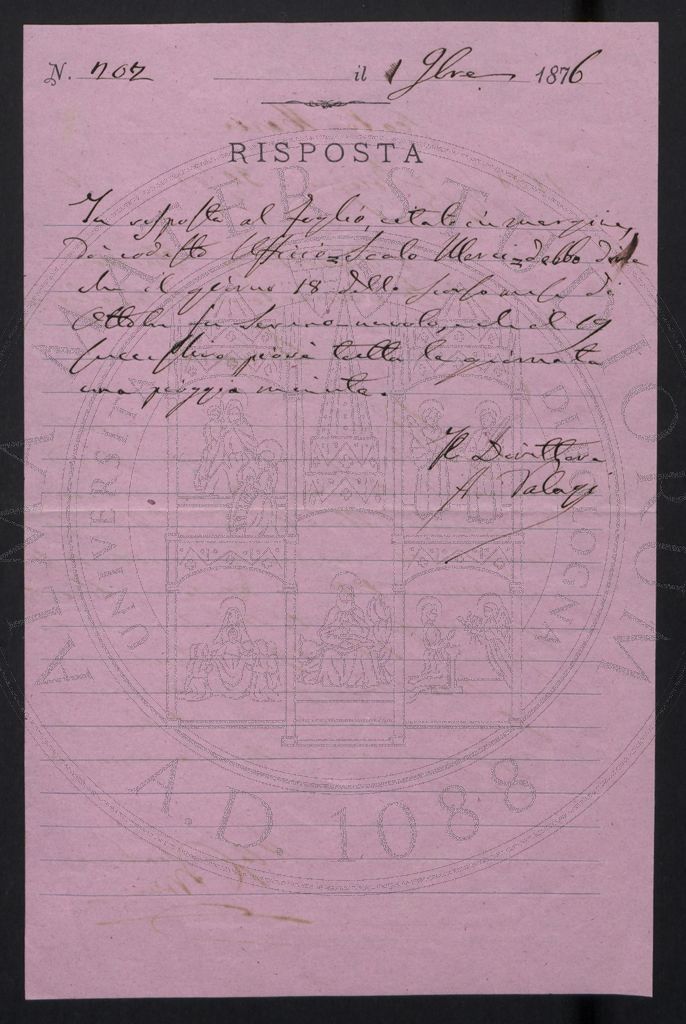 N. 202 il 1 9bre 1876
RISPOSTA
In risposta al foglio, citato in margine,
di codesto Ufficio=Scalo Merci=debbo dire
che il giorno 18 dello scorso mese di
Ottobre fu sereno-nuvolo, e che al 19
successivo piovè tutta la giornata
una pioggia minuta.
Il Direttore
A.
ALMA MATER STUDIORUM
UNIVERSITÀ DI BOLOGNA
A.D. 1088